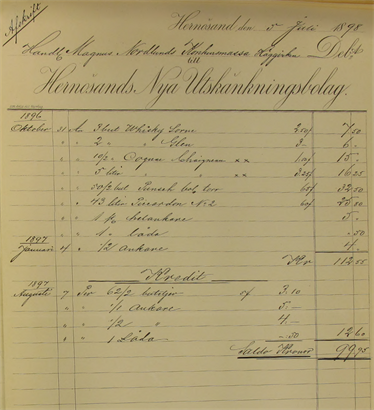 Afskrift
Hernösand den 5 Juli 1898
Handl. Magnus Nordlunds Konkursmassa Häggvik Debet
till
Hernösands Nya Utskänkningsbolag.
1896
Oktober 31 An 3 but Whisky Lorne 2.50 7.50
" " 2 " " Glen 3.- 6.-
" " 10/2 " Cognac xx 1.50 15.-
" " 5 liter " " xx 3.25 16.25
" " 50/2 but Punsch 65/ 32.50
" " 43 liter No 2 60/
" " 1 helankare 5.-
" " 1 låda -.50
1897
Januari 4 " 1/2 ankare 4.-
Kr 112.55
Kredit
1897
Augusti 7 Per 62/2 buteljer of 3.10
" " 1/1 ankare 5.-
" " 1/2 " 4.-
" " 1 låda -.50 12.60
Saldo Kronor 99.95